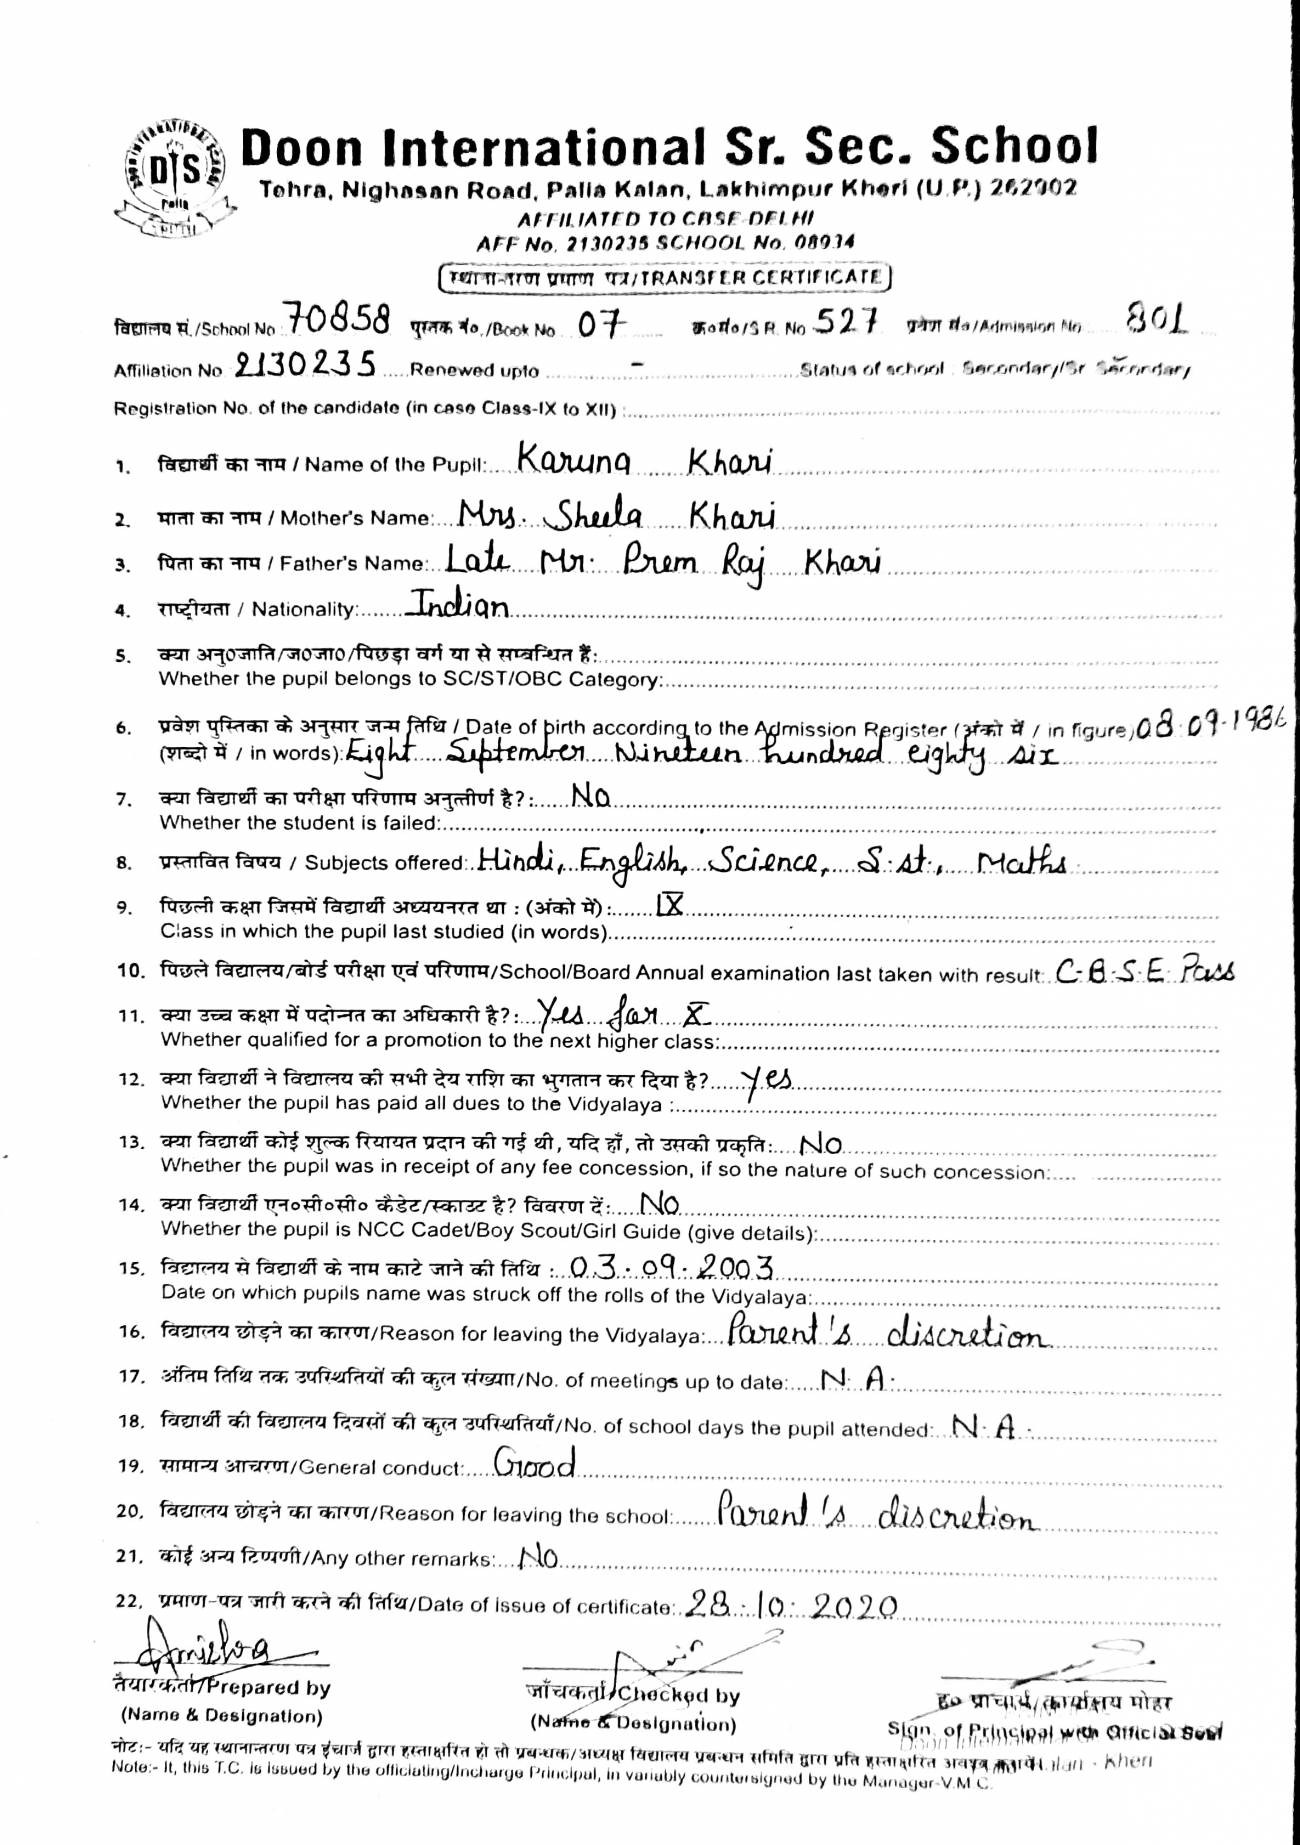 DIS
Palia
Doon International Sr. Sec. School
Tehra, Nighasan Road, Palia Kalan, Lakhimpur Kheri (U.P.) 262902
AFFILIATED TO CBSE DELHI
AFF No. 2130235 SCHOOL No. 08934
स्थानान्तरण प्रमाण पत्र/TRANSFER CERTIFICATE
विद्यालय सं./School No 70858 पुस्तक नं०./Book No 07 क्र०सं०/S R. No 527 प्रवेश सं०/Admission No 801
Affiliation No 2130235 Renewed upto - Status of school Secondary/Sr Secondary
Registration No. of the candidate (in case Class-IX to XII) :
1. विद्यार्थी का नाम / Name of the Pupil: Karuna Khari
2. माता का नाम / Mother's Name: Mrs. Sheela Khari
3. पिता का नाम / Father's Name: Late Mr. Prem Raj Khari
4. राष्ट्रीयता / Nationality: Indian
5. क्या अनु०जाति/ज०जा०/पिछड़ा वर्ग या से सम्बन्धित हैं:
Whether the pupil belongs to SC/ST/OBC Category:
6. प्रवेश पुस्तिका के अनुसार जन्म तिथि / Date of birth according to the Admission Register (अंको में / in figure) 08.09.1986
(शब्दो में / in words): Eight September Nineteen hundred eighty six
7. क्या विद्यार्थी का परीक्षा परिणाम अनुत्तीर्ण है?: No
Whether the student is failed:
8. प्रस्तावित विषय / Subjects offered: Hindi, English, Science, S.st., Maths
9. पिछली कक्षा जिसमें विद्यार्थी अध्ययनरत था : (अंको में): IX
Class in which the pupil last studied (in words)
10. पिछले विद्यालय/बोर्ड परीक्षा एवं परिणाम/School/Board Annual examination last taken with result: C.B.S.E Pass
11. क्या उच्च कक्षा में पदोन्नत का अधिकारी है?: Yes for X
Whether qualified for a promotion to the next higher class:
12. क्या विद्यार्थी ने विद्यालय की सभी देय राशि का भुगतान कर दिया है? yes
Whether the pupil has paid all dues to the Vidyalaya :
13. क्या विद्यार्थी कोई शुल्क रियायत प्रदान की गई थी, यदि हाँ, तो उसकी प्रकृति: No
Whether the pupil was in receipt of any fee concession, if so the nature of such concession:
14. क्या विद्यार्थी एन०सी०सी० कैडेट/स्काउट है? विवरण दें: No
Whether the pupil is NCC Cadet/Boy Scout/Girl Guide (give details):
15. विद्यालय से विद्यार्थी के नाम काटे जाने की तिथि : 03.09.2003
Date on which pupils name was struck off the rolls of the Vidyalaya:
16. विद्यालय छोड़ने का कारण/Reason for leaving the Vidyalaya: Parent's discretion
17. अंतिम तिथि तक उपस्थितियों की कुल संख्या/No. of meetings up to date: N.A.
18. विद्यार्थी की विद्यालय दिवसों की कुल उपस्थितियाँ/No. of school days the pupil attended: N.A.
19. सामान्य आचरण/General conduct: Good
20. विद्यालय छोड़ने का कारण/Reason for leaving the school: Parent's discretion
21. कोई अन्य टिप्पणी/Any other remarks: No
22. प्रमाण-पत्र जारी करने की तिथि/Date of issue of certificate: 28.10.2020
तैयारकर्ता/Prepared by जाँचकर्ता/Checked by ह० प्राचार्य/कार्यालय मोहर
(Name & Designation) (Name & Designation) Sign. of Principal with Official Seal
नोट:- यदि यह स्थानान्तरण पत्र इंचार्ज द्वारा हस्ताक्षरित हो तो प्रबन्धक/अध्यक्ष विद्यालय प्रबन्धन समिति द्वारा प्रति हस्ताक्षरित अवश्य करायें - Kheri
Note:- It, this T.C. is issued by the officiating/Incharge Principal, in variably countersigned by the Manager-V.M.C.